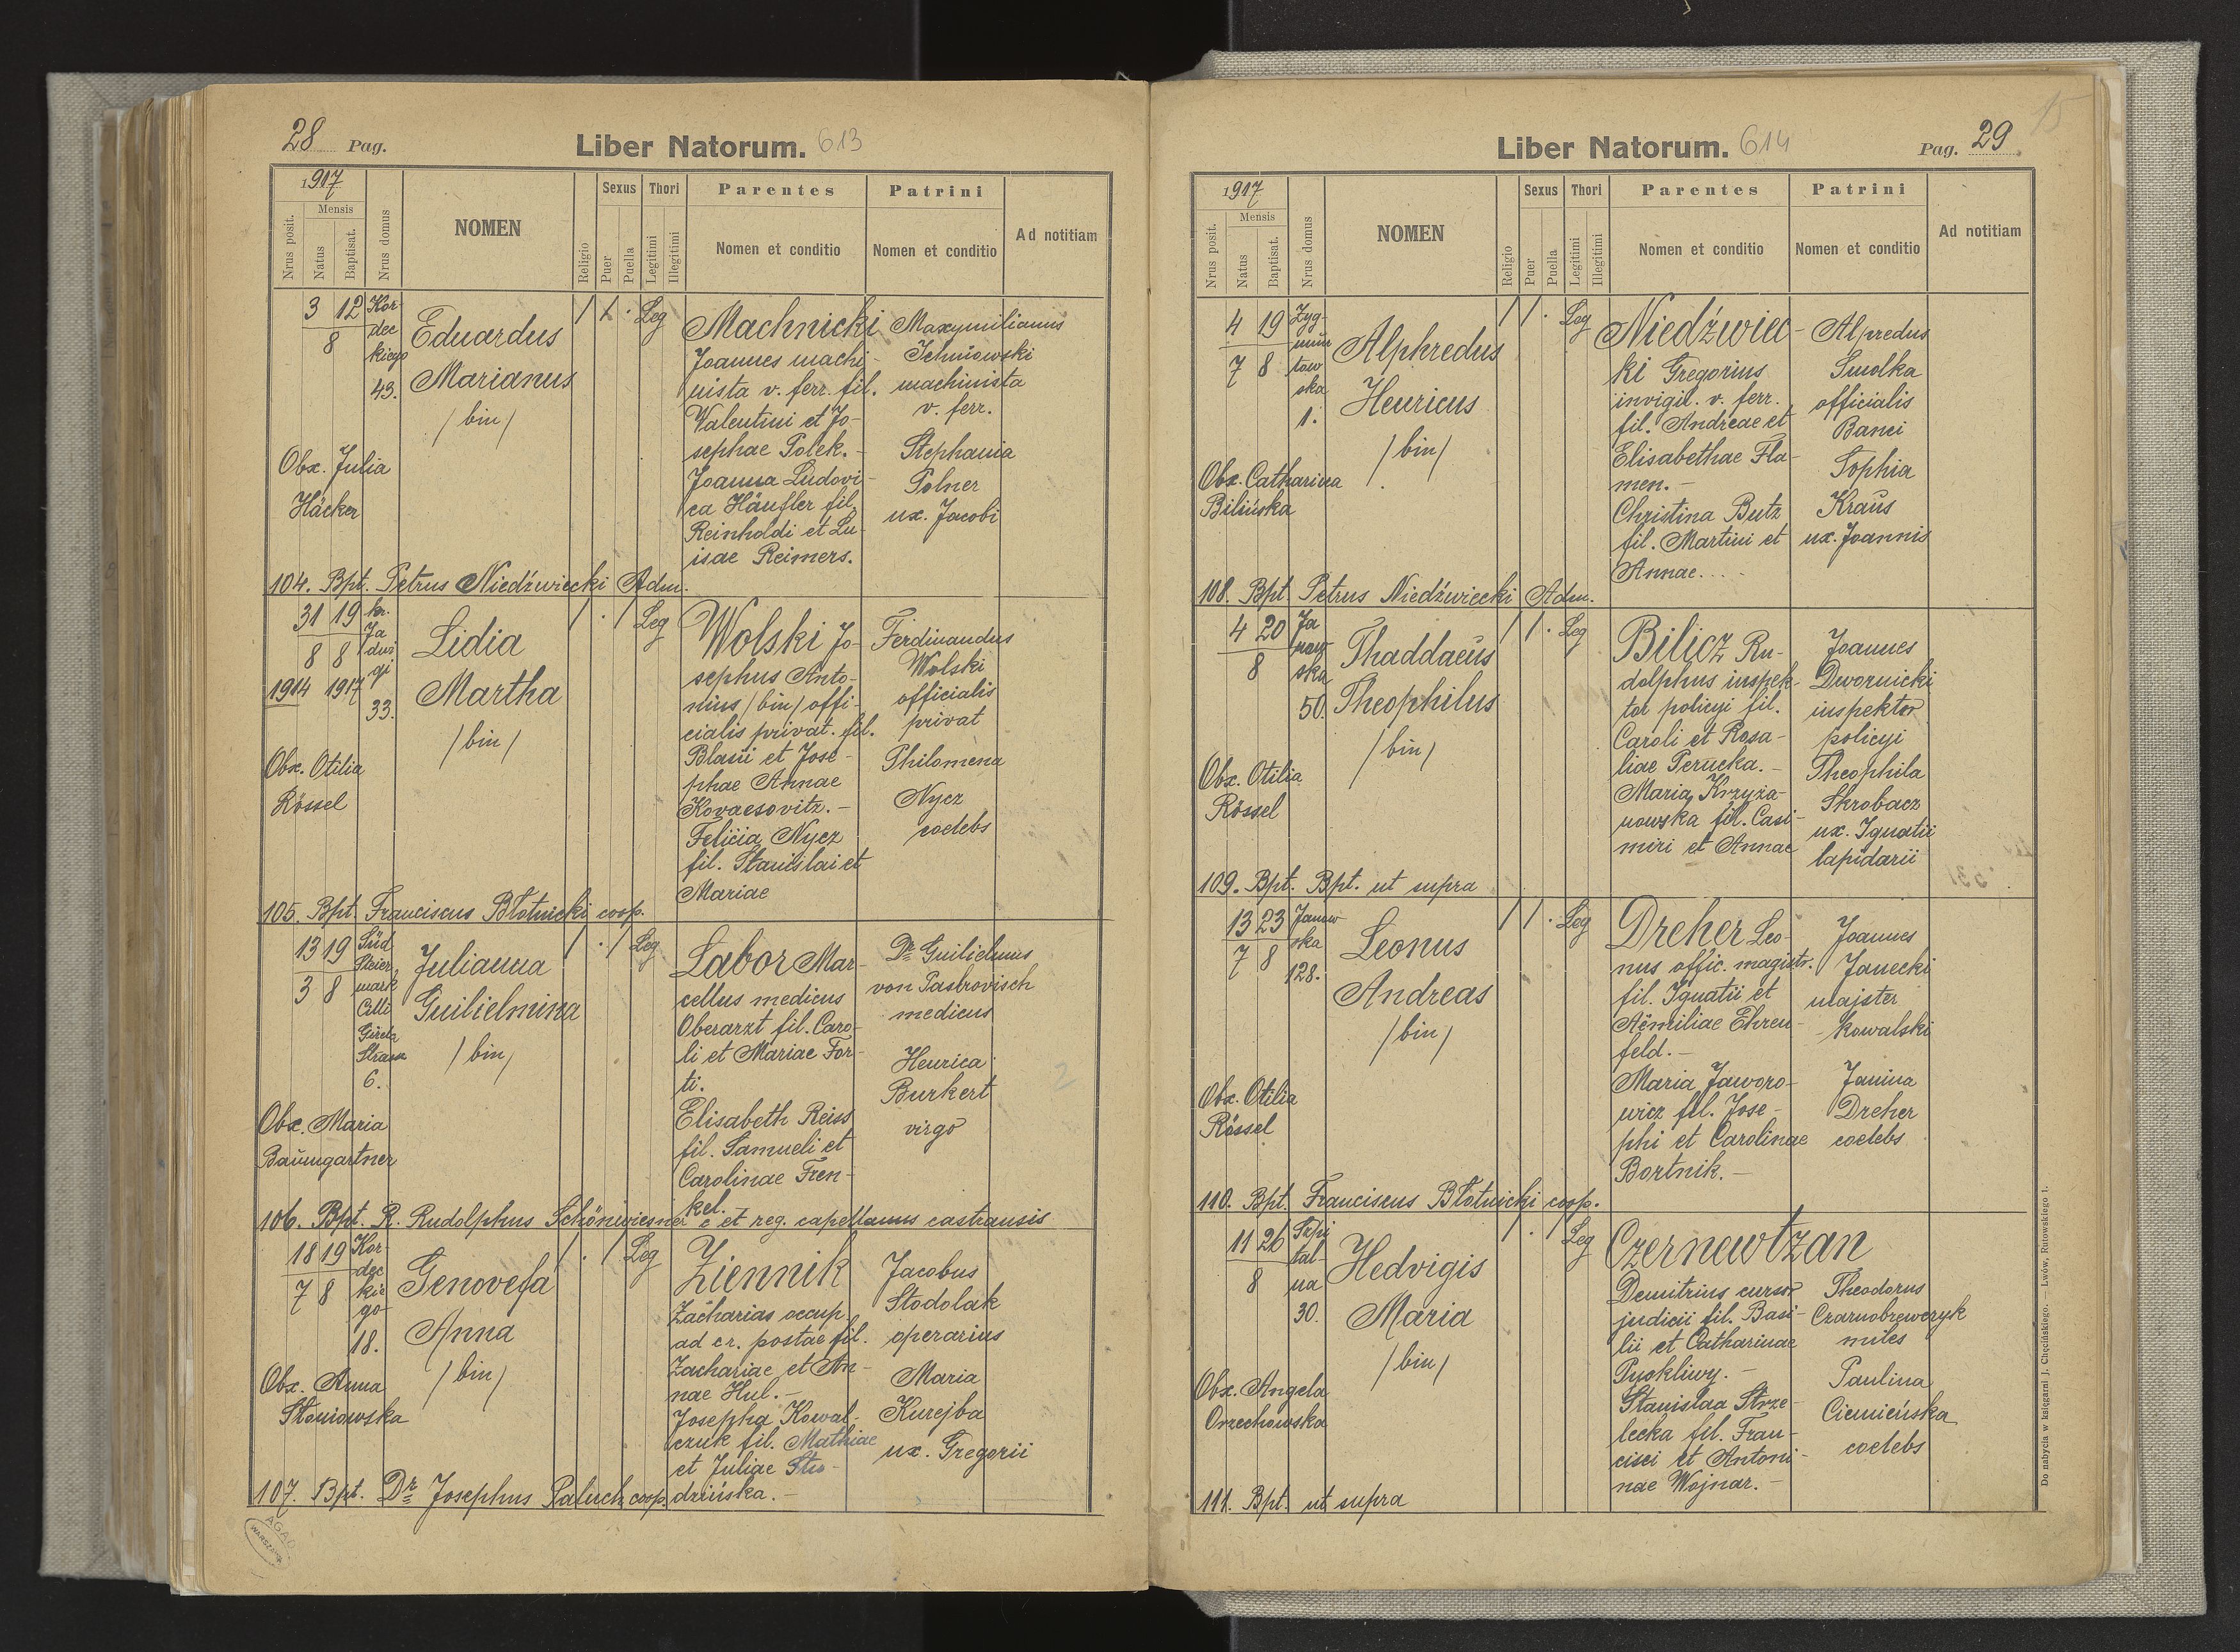 28 Pag.
Liber Natorum. 613
1917
Nrus posit.
Mensis
Natus
Baptisat.
Nrus domus
NOMEN
Religio
Sexus
Puer
Puella
Thori
Legitimi
Illegitimi
Parentes
Nomen et conditio
Patrini
Nomen et conditio
Ad notitiam
3 12
8
Kor-
dec
kiego
43.
Eduardus
Marianus
/bin/
Obx. Julia
Häcker
Leg
Machnicki
Joannes machi-
nista v. ferr. fil.
Valentini et Jo-
sephae Polek. -
Joanna Ludovi-
ca Häufler fil.
Reinholdi et Lu-
isae Reimers.
Maxymilianus
Ichniowski
machinista
v. ferr.
Stephania
Polner
ux. Jacobi
104. Bpt. Petrus Niedźwiecki Adm.
31 19
8 8
1914 1917
kr.
Ja
dwi
gi
33.
Lidia
Martha
/bin/
Obx. Otilia
Rössel
Leg
Wolski Jo-
sephus Anto-
nius /bin/ offi-
cialis privat. fil.
Blasii et Jose-
phae Annae
Kovacsovitz. -
Felicia Nycz
fil. Stanislai et
Mariae
Ferdinandus
Wolski
officialis
privat
Philomena
Nycz
coelebs
105. Bpt. Franciscus Błotnicki coop.
13 19
3 8
Süd
Steier
mark
Cilli
Gisela
Strasse
6.
Julianna
Guilielmina
/bin/
Obx. Maria
Baumgartner
Leg
Labor Mar-
cellus medicus
Oberarzt fil. Caro-
li et Mariae For-
ti.
Elisabeth Reiss
fil. Samueli et
Carolinae Fren-
kel.
Dr Guilielmus
von Pastrovisch
medicus
Henrica
Burkert
virgo
2
106. Bpt. R. Rudolphus Schönwiesner c et reg. capellanus castrensis
18 19
7 8
Kor-
dec
kie
go
18.
Genovefa
Anna
/bin/
Obx. Anna
Słoniowska
Leg
Ziennik
Zacharias occup.
ad cr. postae fil.
Zachariae et An-
nae Hul. -
Josepha Kowal-
czuk fil. Mathiae
et Juliae Stu-
dzińska. -
Jacobus
Stodolak
operarius
Maria
Kurejba
ux. Gregorii
107. Bpt. Dr Josephus Paluch coop.
AGAD
WARSZAWA
Liber Natorum. 614
Pag. 29
15
1917
Nrus posit.
Mensis
Natus
Baptisat.
Nrus domus
NOMEN
Religio
Sexus
Puer
Puella
Thori
Legitimi
Illegitimi
Parentes
Nomen et conditio
Patrini
Nomen et conditio
Ad notitiam
4 19
7 8
Zyg-
mun
tow
ska
1.
Alphredus
Henricus
/bin/
Obx. Catharina
Bilińska
Leg
Niedźwiec-
ki Gregorius
invigil. v. ferr.
fil. Andreae et
Elisabethae Fla-
men. -
Christina Butz
fil. Martini et
Annae. . . -
Alfredus
Smolka
officialis
Banci
Sophia
Kraus
ux. Joannis
108. Bpt Petrus Niedźwiecki Adm.
4 20
8
Ja
now
ska
50.
Thaddaeus
Theophilus
/bin/
Obx. Otilia
Rössel
Leg
Bilicz Ru-
dolphus inspek-
tor policyi fil.
Caroli et Rosa-
liae Perucka. -
Maria Krzyża-
nowska fil. Casi-
miri et Annae
Joannes
Dwornicki
inspektor
policyi
Theophila
Skrobacz
ux. Ignatii
lapidarii
109. Bpt. Bpt. ut supra
13 23
7 8
Janow
ska
128.
Leonus
Andreas
/bin/
Obx. Otilia
Rössel
Leg
Dreher Leo-
nus offic. magistr.
fil. Ignatii et
Aemiliae Ehren-
feld. -
Maria Jaworo-
wicz fil. Jose-
phi et Carolinae
Bortnik. -
Joannes
Janecki
majster
kowalski
Janina
Dreher
coelebs
110. Bpt. Franciscus Błotnicki coop.
11 26
8
Szpi
tal-
na
30.
Hedvigis
Maria
/bin/
Obx. Angela
Orzechowska
Leg
Czernewtzan
Demitrius cursor
judicii fil. Basi-
lii et Catharinae
Puokliwy. -
Stanislaa Strze-
lecka fil. Fran-
cisci et Antoni-
nae Wojnar. -
Theodorus
Czarnobrewczyk
miles
Paulina
Ciemieńska
coelebs
111. Bpt. ut supra
Do nabycia w księgarni J. Chęcińskiego. — Lwów, Rutowskiego 1.